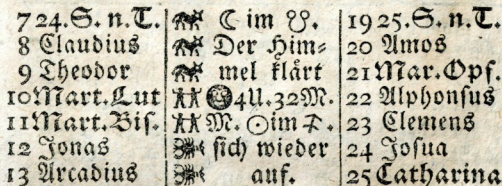 7 24. S. n. T. ☾ im ☋. 19 25. S. n. T.
8 Claudius Der Him= 20 Amos
9 Theodor mel klärt 21 Mar. Opf.
10 Mart. Lut 4U. 32M. 22 Alphonsus
11 Mart. Bis. M. ☉ im ♐. 23 Clemens
12 Jonas sich wieder 24 Josua
13 Arcadius auf. 25 Catharina